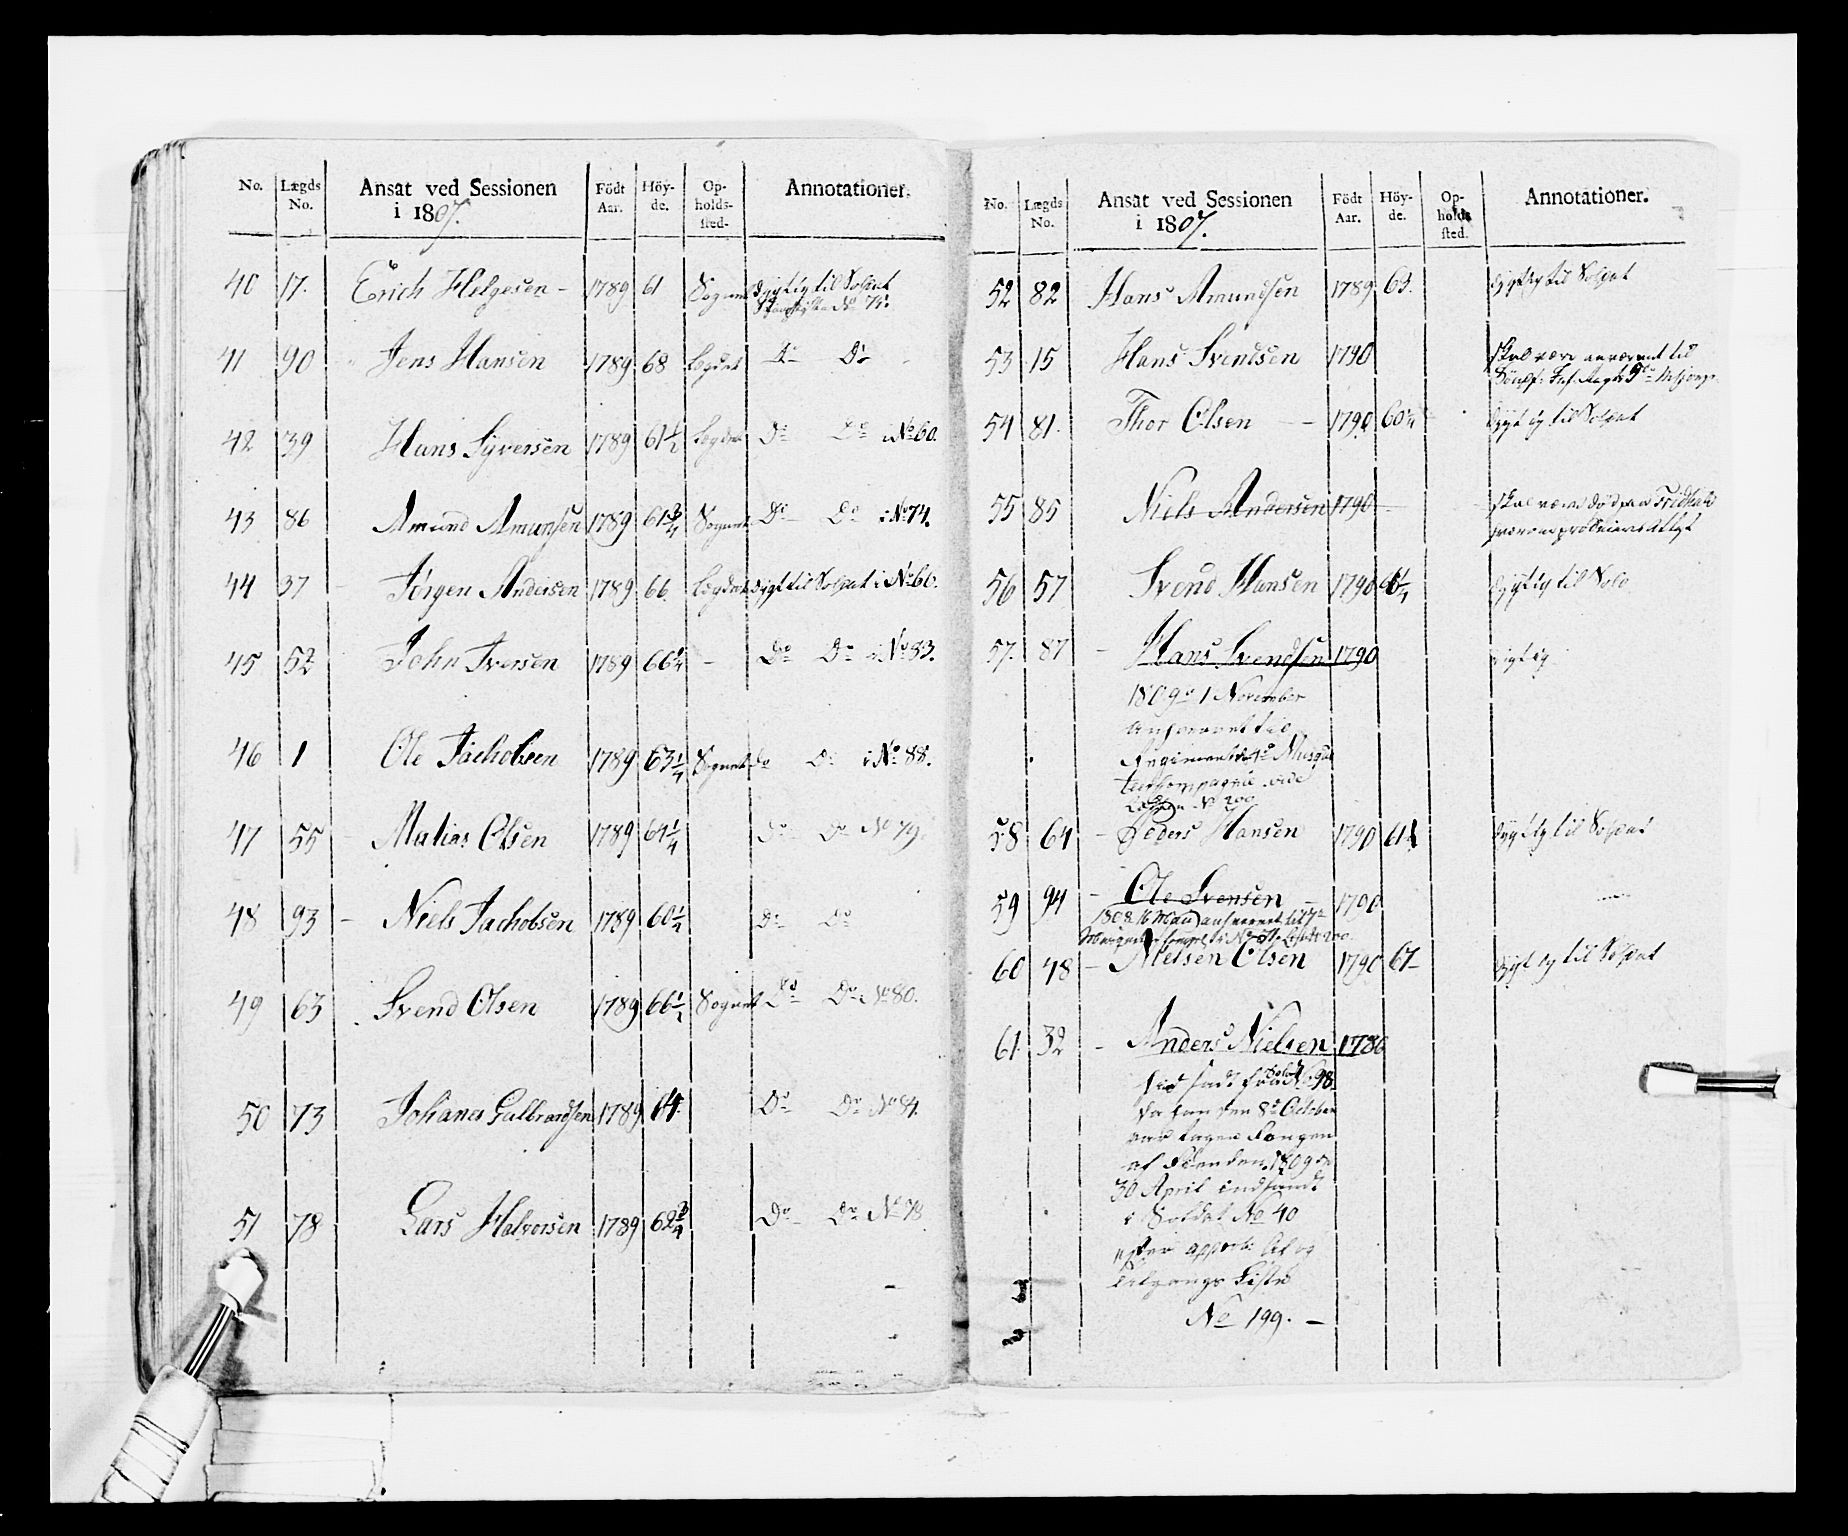 No. Lægds No. Ansat ved Sessionen i 1807. Födt Aar. Höy-de. Op-holds-sted. Annotationer.
40 17. Erich Helgesen - 1789 61 Sognet dygtig til Soldat
No 75.
41 90 Jens Hansen 1789 68 Lægdet Do Do
42 39 Hans Syversen 1789 61 1/2 Lægdet Do Do i No 60.
43 86 Amund Amunsen 1789 61 3/4 Sognet Do Do i No 74.
44 37 Jørgen Andersen 1789 66 Lægdet dygt til Soldat i No 60.
45 52 John Iversen 1789 66 1/4 - Do Do i No 83.
46 1 Ole Jachobsen 1789 63 1/4 Sognet Do Do i No 88.
47 55 Matias Olsen 1789 64 1/4 Do Do No 79.
48 93 - Niels Jachobsen 1789 60 1/4 Do Do
49 63 Svend Olsen 1789 66 1/2 Sognet Do Do No 80.
50 73 Johanes Gulbrandsen 1789 64. Do Do No 84.
51 78 Lars Halvorsen 1789 62 3/4 Do Do No 78
No. Lægds No. Ansat ved Sessionen i 1807. Födt Aar. Höy-de. Op-holds sted. Annotationer.
52 82 Hans Amundsen 1789 63. dygtig til Soldat
53 15 Hans Svendsen 1790 skal være anværvet til
Inf. Regts
54 81. Thor Olsen - - 1790 60 1/4 dygtig til Soldat
55 85 Niels Andersen 1790 skal være død paa
56 57 Svend Hansen 1790 dygtig til Sold
57. 87 - Hans Svendsen 1790 dygtig
1809 d 1 November
anhvervet til
Regimentets Musque
teer Compagnie vide
No 200
58 64 - Peders Hansen 1790 61 dygtig til Soldat
59 94 - Ole Svensen - 1790
1808 16 May anhvervet til
200
60 48 - Nielsen Olsen 1790 67 - dygtig til Soldat
61. 32 - Anders Nielsen 1786
No 98
da han den 8de October
var tagen Fangen
af Fienden. 1809 d
30 April indsandt
i Soldat No 40
efter approb: Af og
Tilgangs Liste
No 199. -